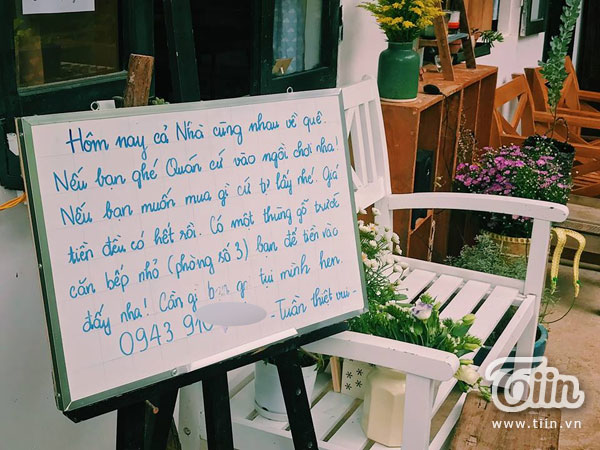 Hôm nay cả Nhà cùng nhau về quê.
Nếu bạn ghé Quán cứ vào ngồi chơi nha!
Nếu bạn muốn mua gì cứ tự lấy nhé. Giá
tiền đều có hết rồi. Có một thùng gỗ trước
căn bếp nhỏ (phòng số 3) bạn để tiền vào
đấy nha! Cần gì bạn gọi tụi mình hen.
0943 910 - Tuần thiệt vui -
Tiin
www.tiin.vn